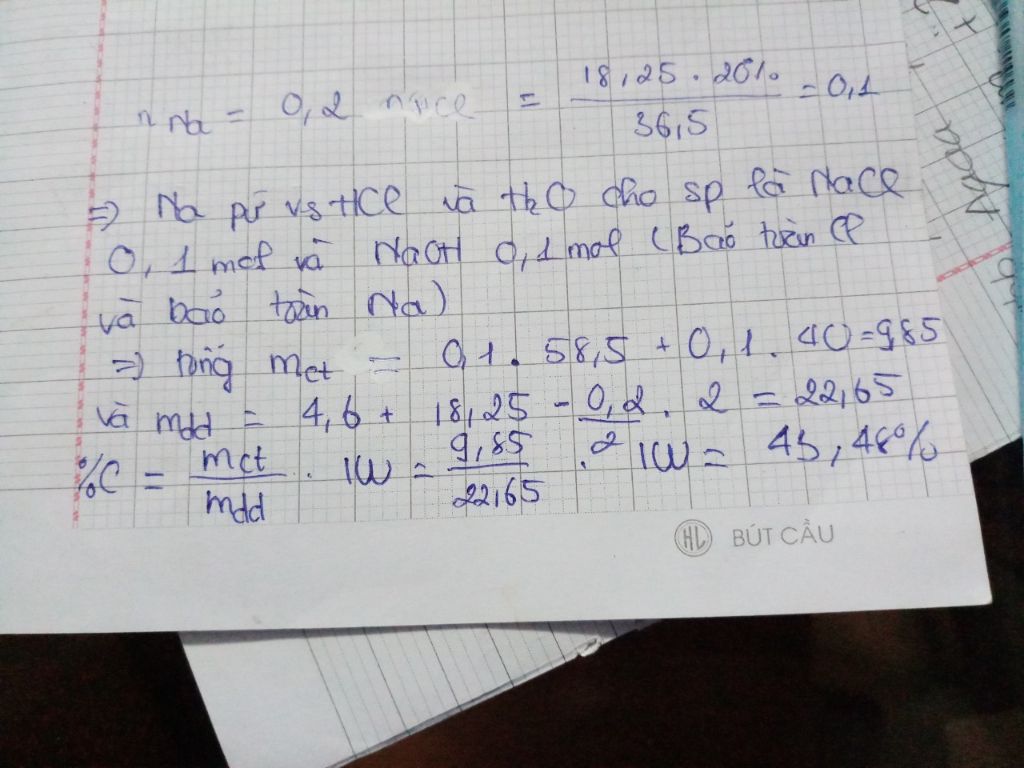 n Na = 0,2 nHCl = 18,25 . 20% / 36,5 = 0,1
=> Na pứ vs HCl và H2O cho sp là NaCl
0,1 mol và NaOH 0,1 mol (Bảo toàn Cl
và bảo toàn Na)
=> tổng mct = 0,1 . 58,5 + 0,1 . 40 = 9,85
và mdd = 4,6 + 18,25 - 0,2 / 2 . 2 = 22,65
%C = mct / mdd . 100 = 9,85 / 22,65 . 100 = 43,48%
HL BÚT CẦU